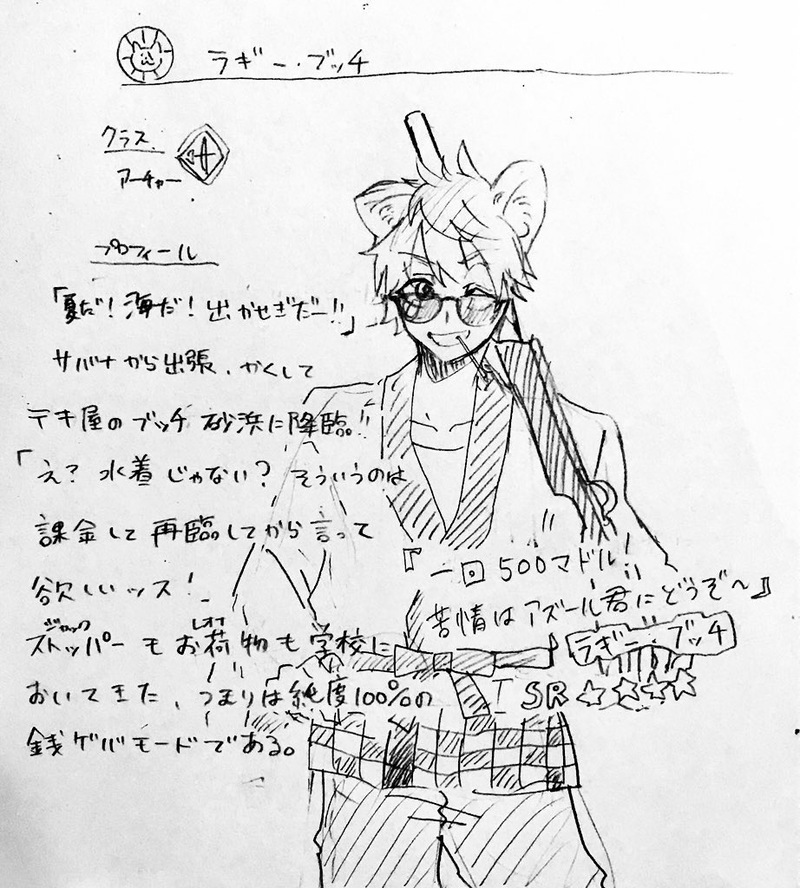 ラギー・ブッチ
クラス
アーチャー
プロフィール
「夏だ！海だ！出かせぎだー!!」
サバナから出張、かくして
テキ屋のブッチ 砂浜に降臨。!!
「え？水着じゃない？そういうのは
課金して再臨してから言って
欲しいッス！
ジャック レオナ
ストッパーもお荷物も学校に
おいてきた、つまりは純度100%の
銭ゲバモードである。
『一回500マドル!!
苦情はアズール君にどうぞ〜』
ラギー・ブッチ
SR ☆☆☆☆☆